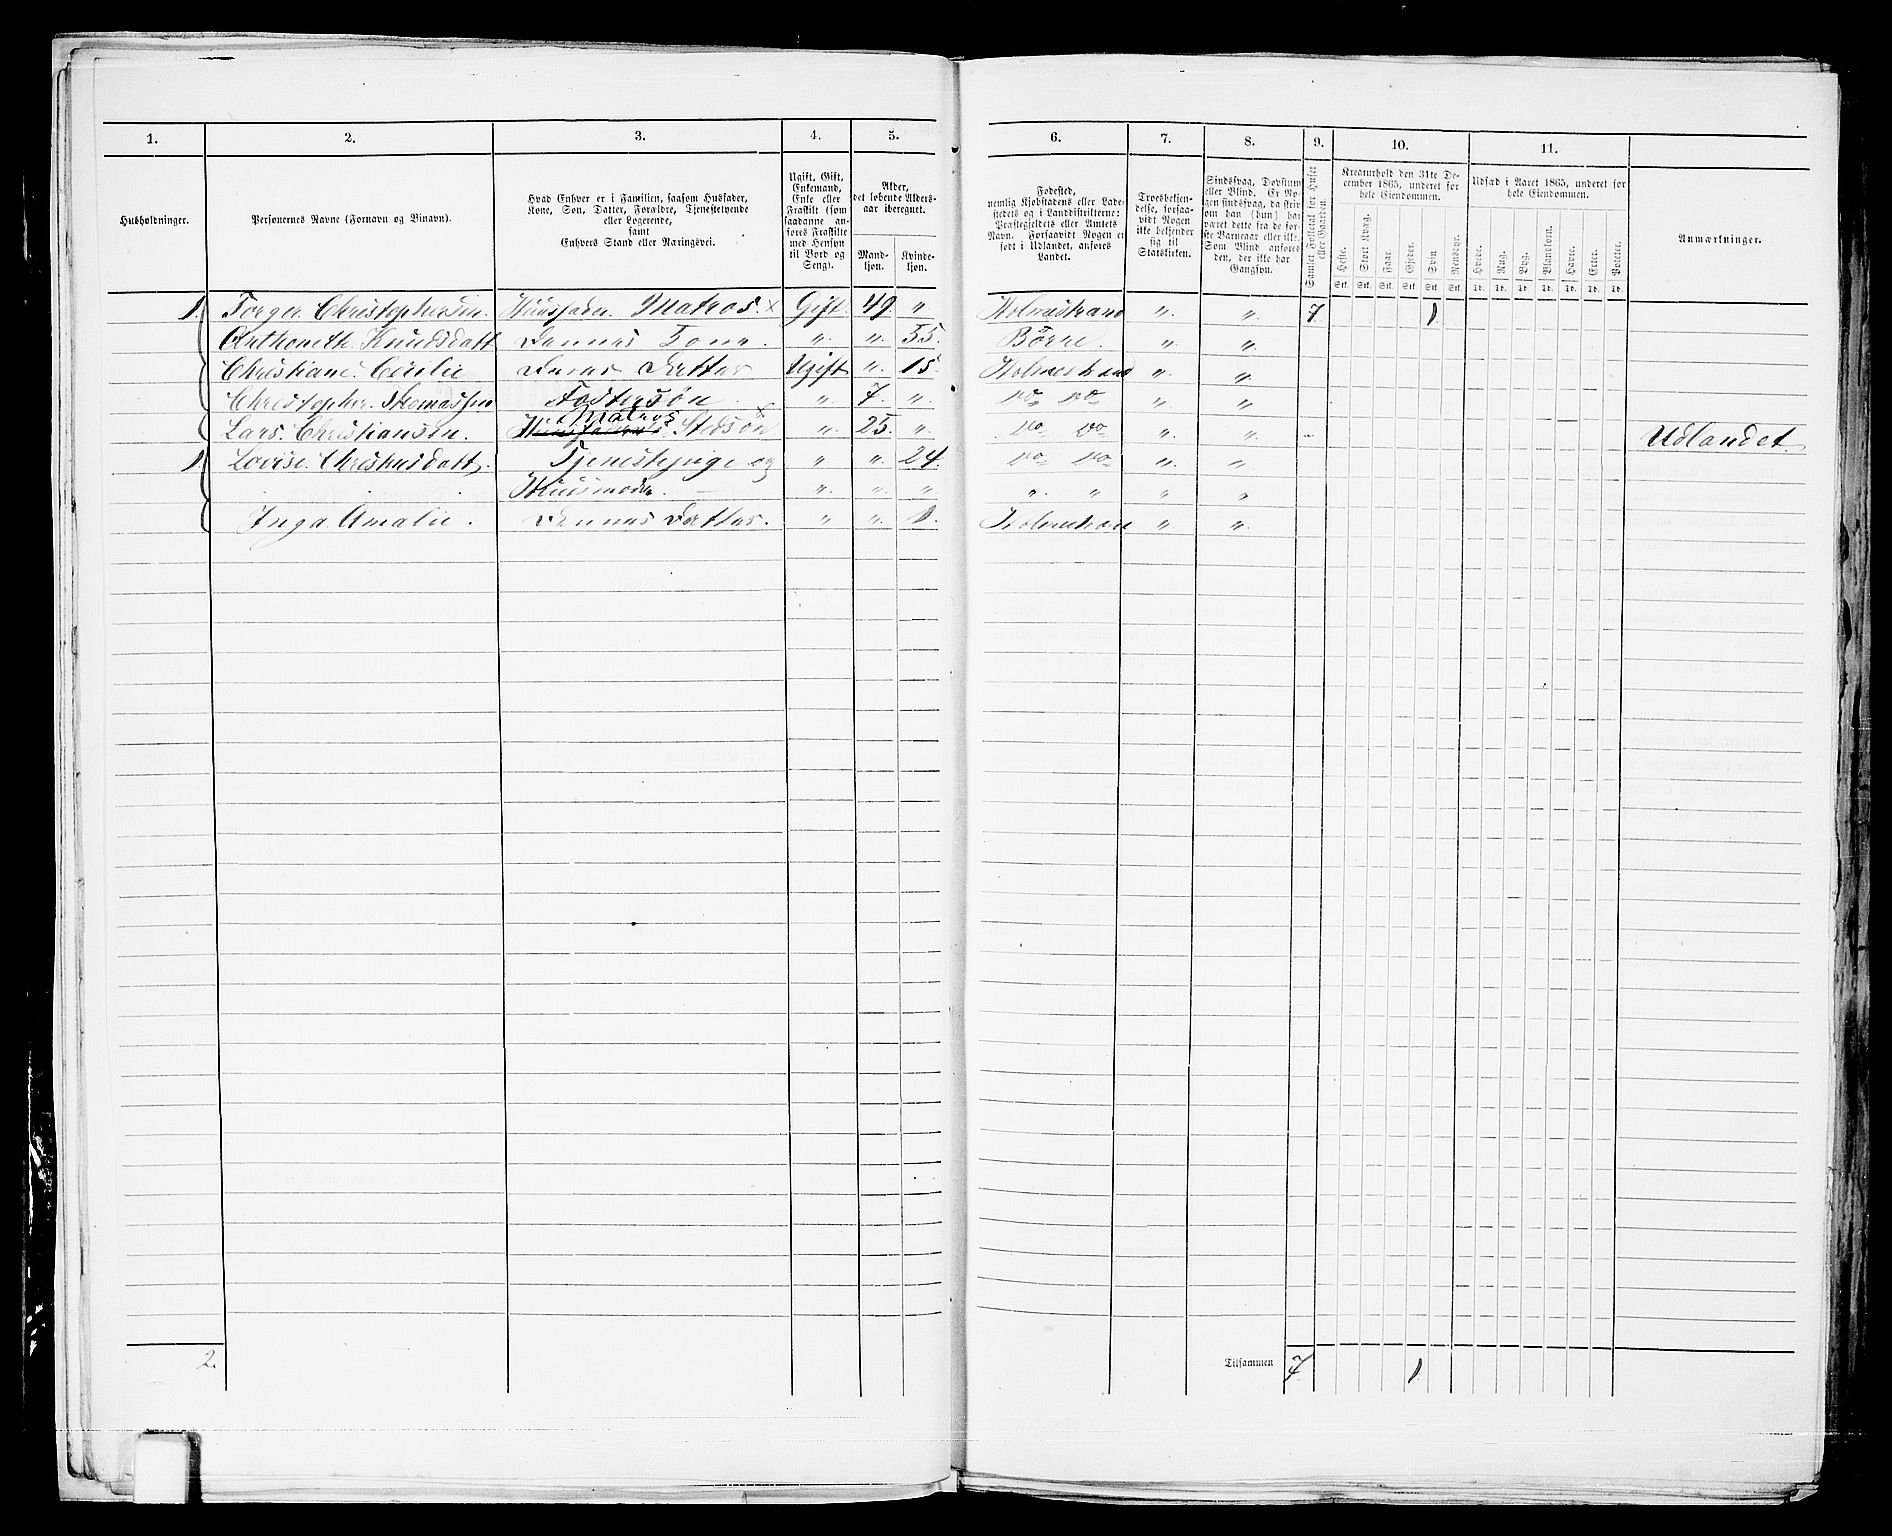 1. 2. 3. 4. 5. 6. 7. 8. 9. 10. 11.
Husholdninger.
Personernes Navne (Fornavn og Binavn).
Hvad Enhver er i Familien, saasom Husfader,
Kone, Søn, Datter, Forældre, Tjenestetyende
eller Logerende,
samt
Enhvers Stand eller Næringsvei.
Ugift, Gift,
Enkemand,
Enke eller
Fraskilt (som
saadanne an-
føres Fraskilte
med Hensyn
til Bord og
Seng).
Alder,
det løbende Alders-
aar iberegnet.
Mand-
kjøn.
Kvinde-
kjøn.
Fødested,
nemlig Kjøbstadens eller Lade-
stedets og i Landdistrikterne:
Præstegjeldets eller Amtets
Navn. Forsaavidt Nogen er
født i Udlandet, anføres
Landet.
Troesbekjen-
delse, forsaa-
vidt Nogen
ikke bekjender
sig til
Statskirken.
Sindssvag, Døvstum
eller Blind. Er No-
gen sindssvag, da skri-
ves om han (hun) har
været dette fra de før-
ste Barneaar eller ikke.
Som Blind anføres
den, der ikke har
Gangsyn.
Kreaturhold den 31te De-
cember 1865, underet for
hele Eiendommen.
Heste. Stort Kvæg. Faar Gjeder. Svin Rensdyr.
Stk. Stk. Stk. Stk. Stk. Stk.
Udsæd i Aaret 1865, underet for
hele Eiendommen.
Hvede. Rug. Byg. Blandkorn. Havre. Erter. Poteter.
Td. Td. Td. Td. Td. Td. Td.
Anmærkninger.
1. Torger Christophersen. Huusfader Matros. × Gift. 49 " Holmestrand ". ". 7 1
Anthonette Knudsdatt Dennes Kone. ". ". 55. Børre. ". ".
Christiane Cecilie Deres Datter Ugift ". 15. Holmestrand ". ".
Christopher Thomassen Fostersøn. ". 7. ". Do Do ". ".
Lars. Christiansen. Matros Stedsøn × ". 25. ". Do Do ". ". Udlandet.
1 Lovise. " " 24. Do Do ". ".
Tjenestepige og
Huusmoder. ". ". " ". " " "
Inga Amalie. Dennes Datter. " ". 1. Holmestran " ".
2. Tilsammen 7 1